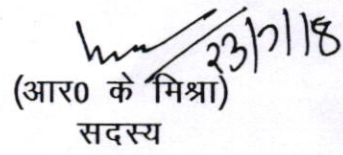 23/7/18
(आर0 के मिश्रा)
सदस्य